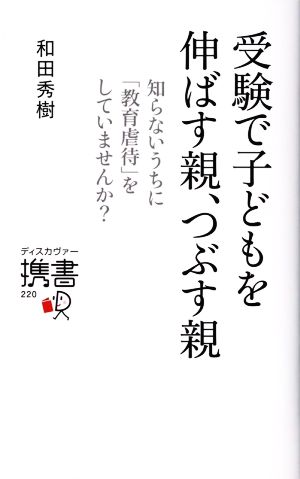 受験で子どもを
伸ばす親、つぶす親
知らないうちに
「教育虐待」を
していませんか?
和田秀樹
ディスカヴァー
携書
220